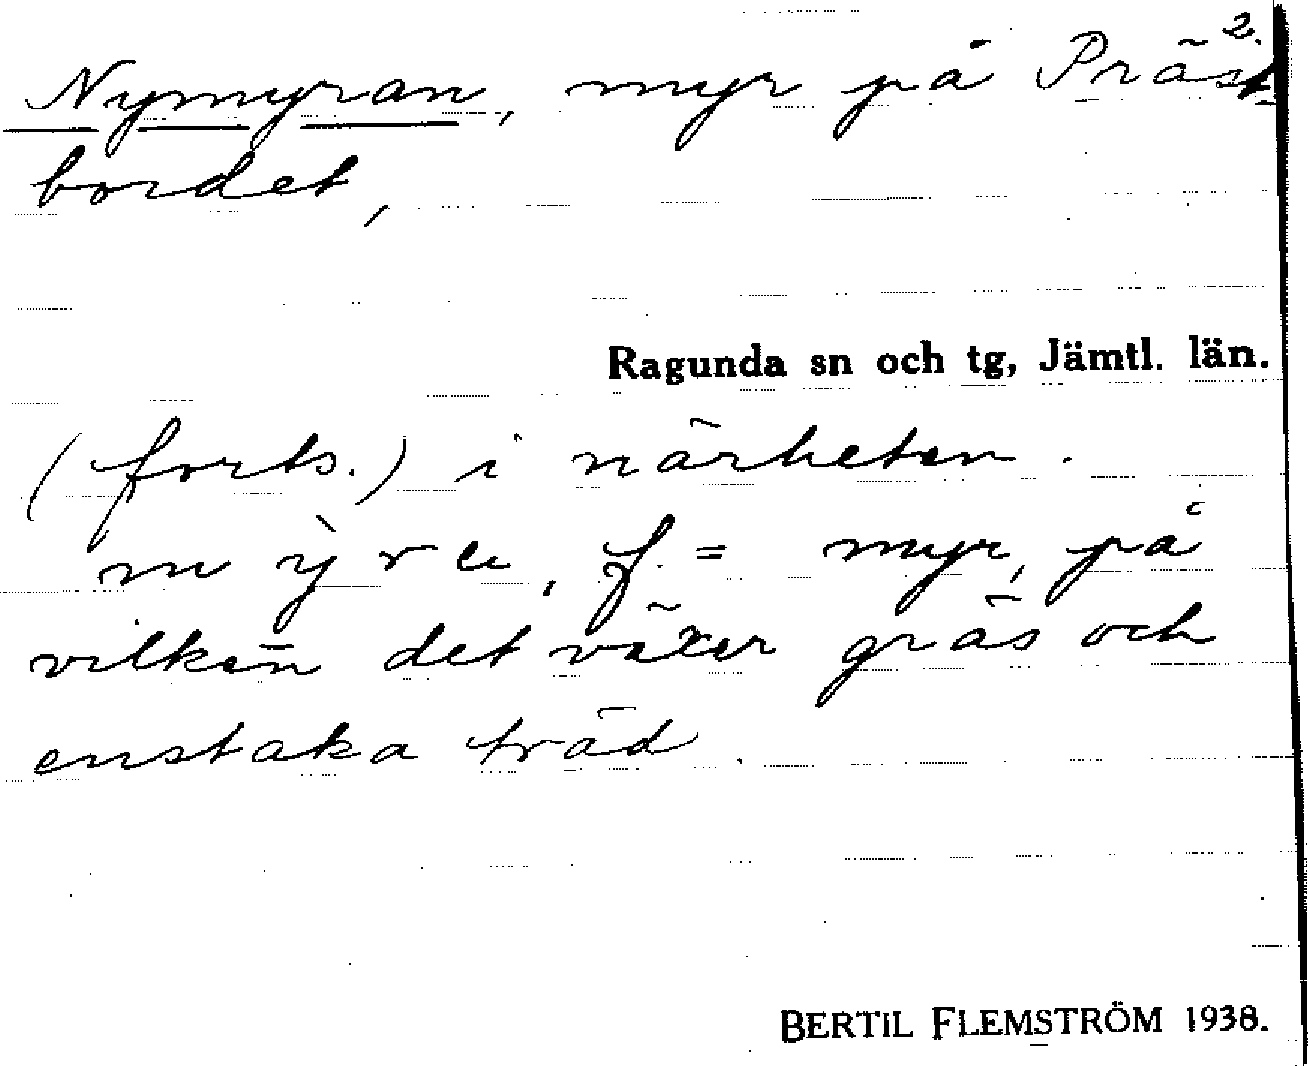 2.
Nymyran, myr på Präst
bordet,
Ragunda sn och tg, Jämtl. län.
(forts.) i närheten.
f. = myr, på
vilken det växer gräs och
enstaka träd.
BERTIL FLEMSTRÖM 1938.